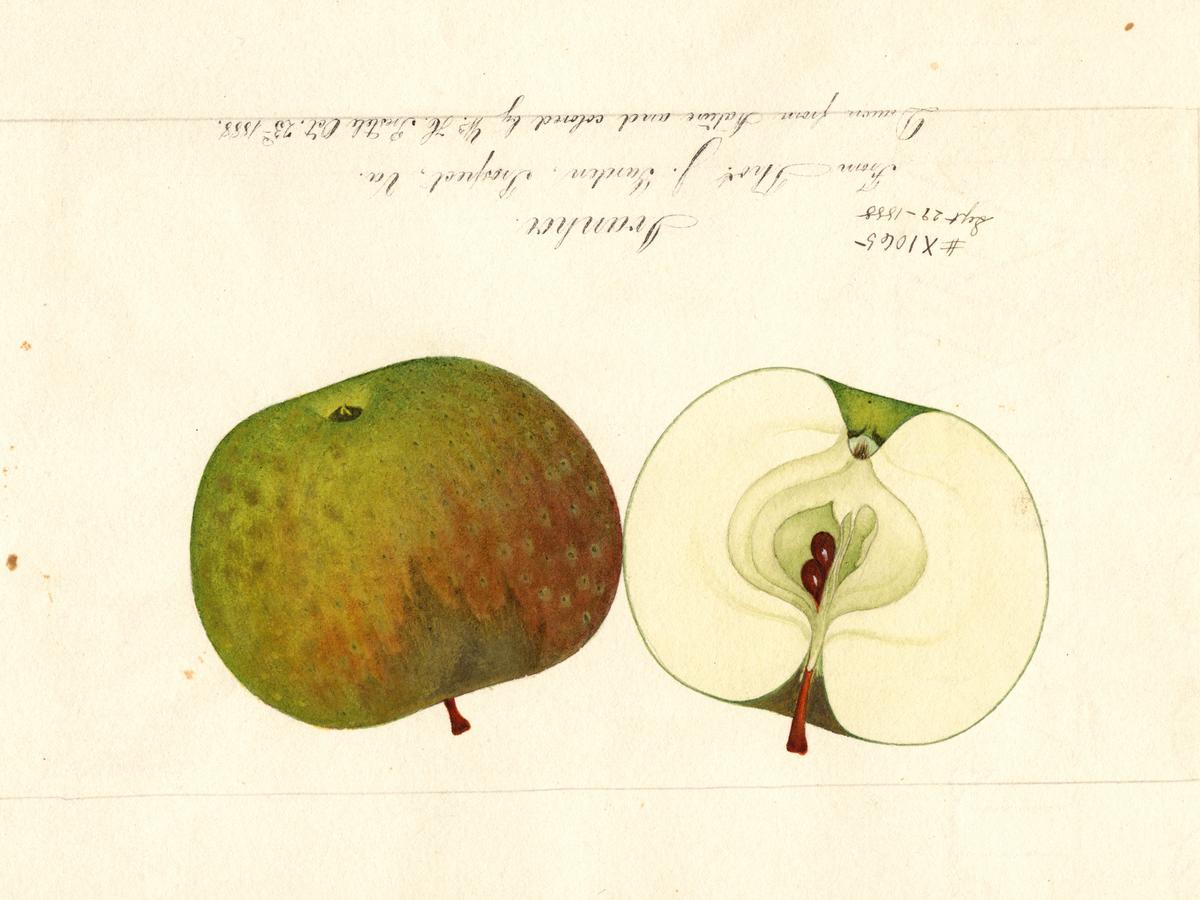 #X1065
Sept 29-1888
Ivanhoe.
From Thos. J. Garden, Prospect, Va.
Drawn from Nature and colored by W. H. Prestele Oct. 23rd 1888.